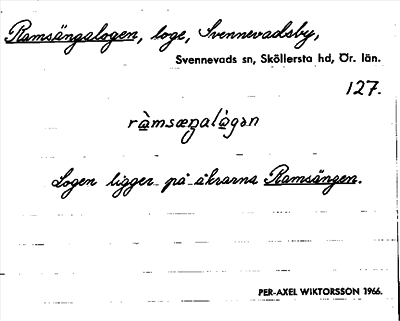 Ramsängslogen, loge, Svennevadsby,
Svennevads sn, Sköllersta hd, Ör. län.
127.
ràmsæŋalògən
Logen ligger på åkrarna Ramsängen.
PER-AXEL WIKTORSSON 1966.